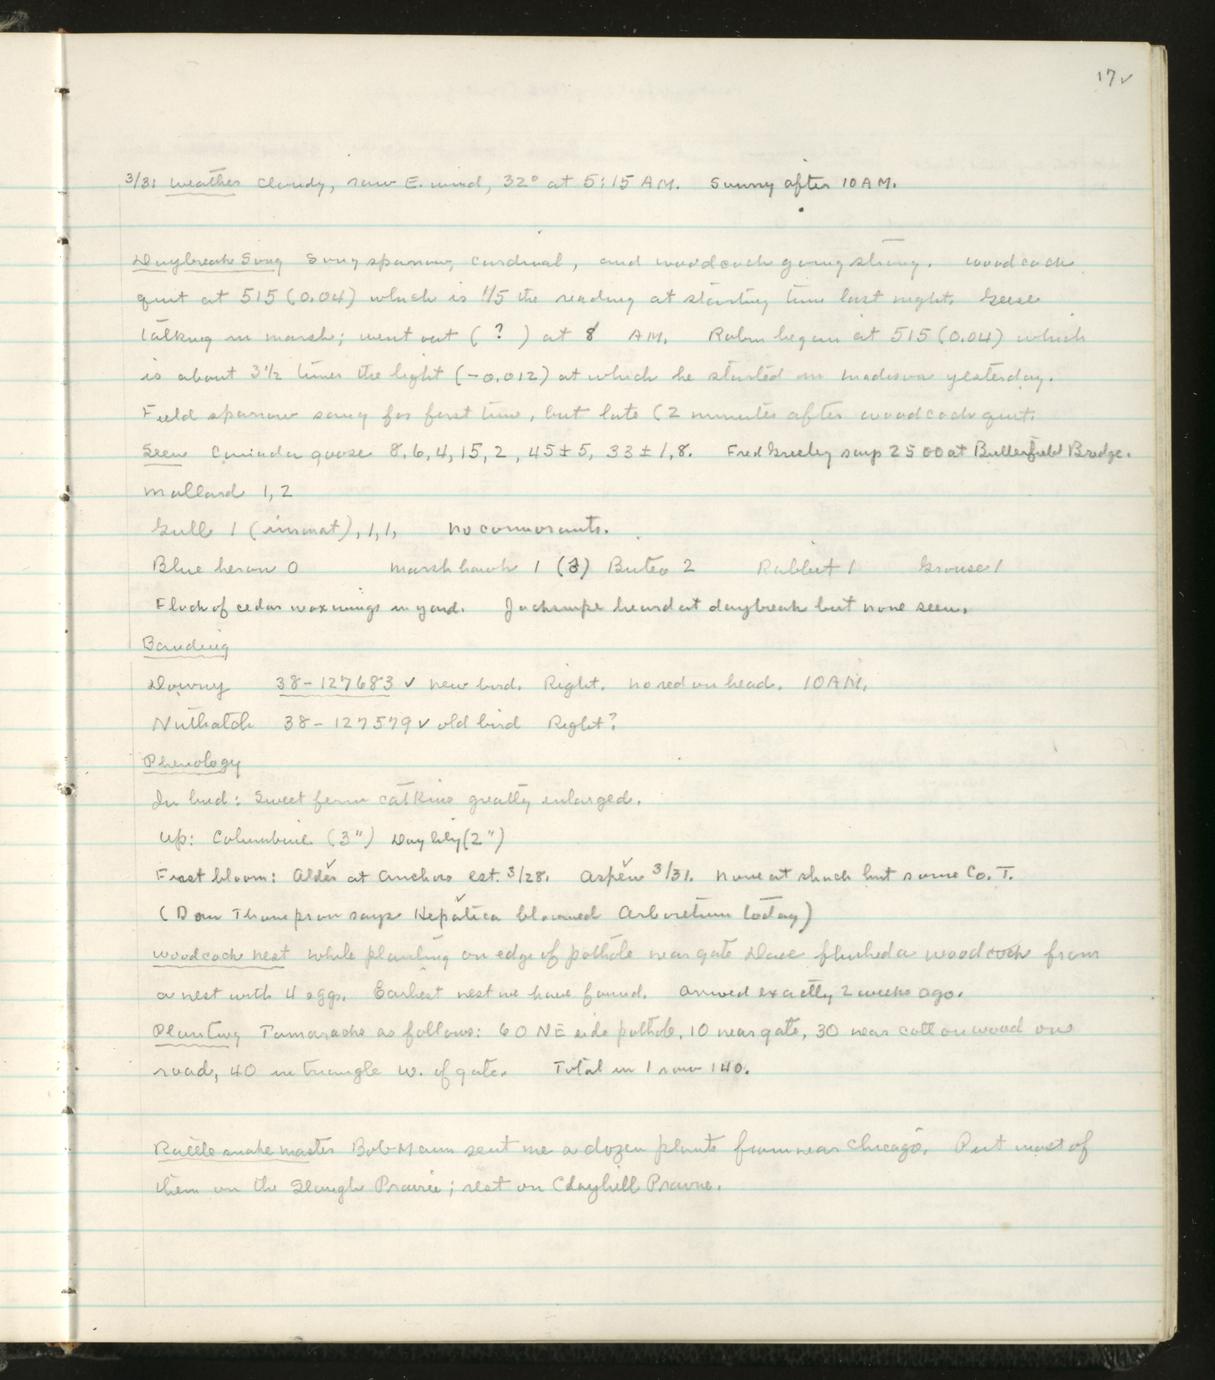 17✓
3/31 Weather Cloudy, raw E. wind, 32° at 5:15 AM. Sunny after 10 AM.
Daybreak Song Song sparrow, cardinal, and woodcock going strong. Woodcock
quit at 515 (0.04) which is 1/5 the reading at starting time last night. Geese
talking in marsh; went out (?) at 8 AM. Robin began at 515 (0.04) which
is about 3 1/2 times the light (-0.012) at which he started in Madison yesterday.
Field sparrow sang for first time, but late (2 minutes after woodcock quit.
Seen Canada goose 8, 6, 4, 15, 2, 45±5, 33±1, 8. Fred Greeley says 2500 at Butterfield Bridge.
Mallard 1, 2
Gull 1 (immat), 1, 1, No cormorants.
Blue heron 0 Marsh hawk 1 (3) Buteo 2 Rabbit 1 Grouse 1
Flock of cedar waxwings in yard. Jacksnipe heard at daybreak but none seen.
Banding
Downy 38-127683 ✓ new bird. Right. No red on head. 10 AM.
Nuthatch 38-127579 ✓ old bird Right?
Phenology
In bud: Sweet fern catkins greatly enlarged.
Up: Columbine (3") Day lily (2")
First bloom: Alder ✓ at Anchor est. 3/28. Aspen ✓ 3/31. None at shack but some Co. T.
(Dan Thompson says Hepatica ✓ bloomed Arboretum today)
Woodcock nest While planting on edge of pothole near gate Dave flushed a woodcock from
a nest with 4 eggs. Earliest nest we have found. Arrived exactly 2 weeks ago.
Planting Tamaracks as follows: 60 NE side pothole, 10 near gate, 30 near cottonwood on
road, 40 in triangle W. of gate. Total in 1 row 140.
Rattlesnake master Bob Mann sent me a dozen plants from near Chicago. Put most of
them on the Slough Prairie; rest on Clayhill Prairie.